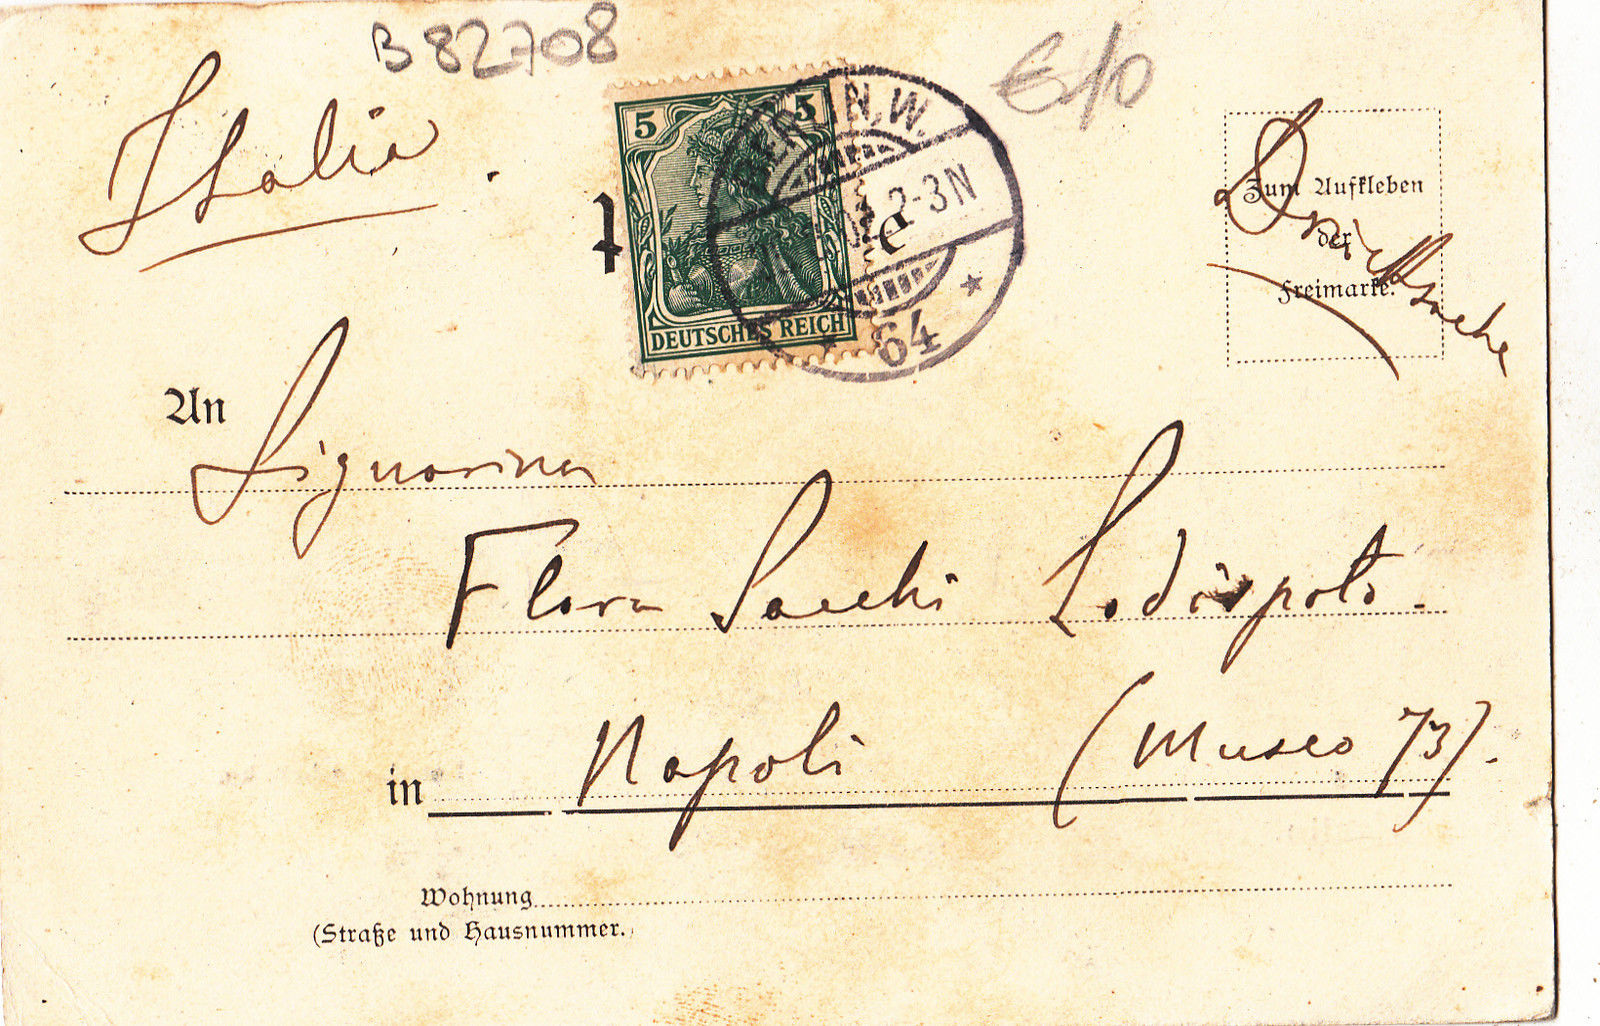 B 82708
Italia
5 5
DEUTSCHES REICH
BERLIN, W.
2-3N
64
Zum Aufkleben
der
Freimarke.
Drucksache
An
Signorina
Flora Sacchi Lodispoto.
in Napoli (Museo 73).
Wohnung
(Straße und Hausnummer.)